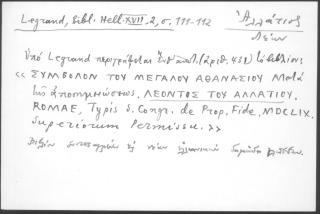 Legrand, Bibl. Hell. XVII, 2, σ. 111-112
Ἀλλάτιος
Λέων
Ὑπὸ Legrand περιγράφεται (ἀριθ. 438) τὸ βιβλίον:
« ΣΥΜΒΟΛΟΝ ΤΟΥ ΜΕΓΑΛΟΥ ΑΘΑΝΑΣΙΟΥ Μετὰ
τῆς ἀποσημειώσεως ΛΕΟΝΤΟΣ ΤΟΥ ΑΛΛΑΤΙΟΥ.
ROMAE, Typis S. Congr. de Prop. Fide, MDCLIX.
Superiorum Permissu. »